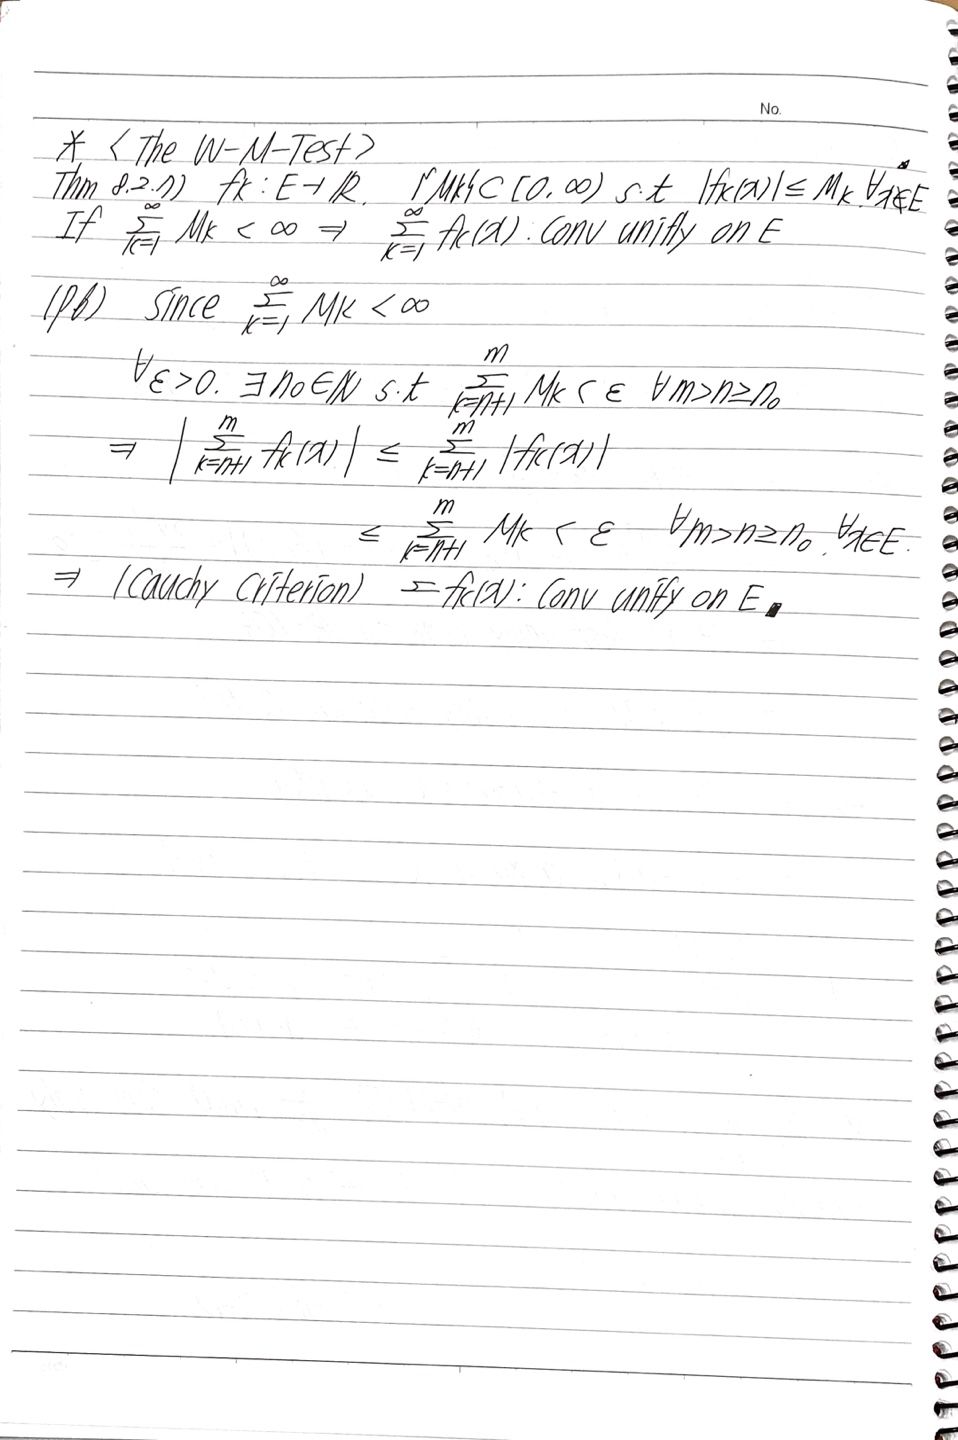 No.
* <The W-M-Test>
Thm 8.2.7) fk : E→ℝ. {Mk} ⊂ [0.∞) s.t |fk(x)| ≤ Mk. ∀x∈E
If ∑_{k=1}^{∞} Mk < ∞ ⇒ ∑_{k=1}^{∞} fk(x) : Conv unifly on E
(pf) since ∑_{k=1}^{∞} Mk < ∞
∀ε>0. ∃n₀∈ℕ s.t ∑_{k=n+1}^{m} Mk < ε ∀m>n≥n₀
⇒ |∑_{k=n+1}^{m} fk(x)| ≤ ∑_{k=n+1}^{m} |fk(x)|
≤ ∑_{k=n+1}^{m} Mk < ε ∀m>n≥n₀. ∀x∈E.
⇒ (Cauchy Criterion) ∑fk(x) : Conv unify on E.